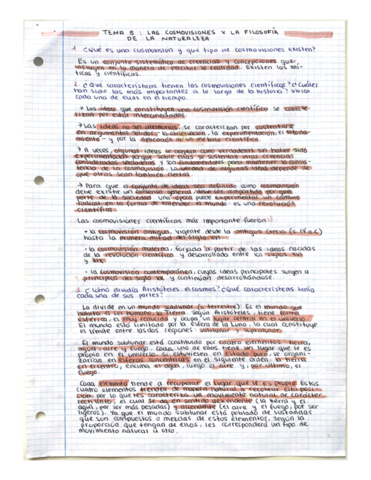 TEMA 8 : LAS COSMOVISIONES Y LA FILOSOFÍA
DE LA NATURALEZA
1. ¿Qué es una cosmovisión y qué tipo de cosmovisiones existen?
Es un conjunto sistemático de creencias y concepciones que
influyen en la manera de percibir la realidad. Existen las mí-
ticas y científicas.
2. ¿Qué características tienen las cosmovisiones científicas? ¿Cuáles
han sido las más importantes a lo largo de la historia? Ubica
cada una de ellas en el tiempo.
→ Las ideas que constituyen una cosmovisión científica se
por estar interconectadas
→ Las ideas no son aleatorias, se caracterizan por sustentarse
en argumentos sólidos: la observación, la experimentación, el razona-
miento y por la aplicación de un método científico.
→ A veces, algunas ideas se aceptan como verdaderas sin haber sido
experimentadas porque sobre ellas se sustentan otras creencias
consideradas verdaderas y son fundamentales para mantener la cohe-
rencia de la cosmovisión. La verdad de algunas ideas depende de
que otras sean también ciertas
→ Para que el conjunto de ideas sea definido como cosmovisión
debe existir un consenso general, debe ser compartido por gran
parte de la sociedad. Una época puede experimentar un cambio
radical en la forma de entender el mundo: es una revolución
científica.
Las cosmovisiones científicas más importante fueron:
- la cosmovisión antigua, vigente desde la antigua Grecia (s. IV a.C)
hasta la primera mitad del siglo XVI
- la cosmovisión moderna, forjada a partir de las ideas nacidas
de la revolución científica y desarrollada entre los siglos XVI
y XIX.
- la cosmovisión contemporánea, cuyas ideas principales surgen a
principios del siglo XX y continúan desarrollándose.
3. ¿Cómo dividía Aristóteles el cosmos? ¿Qué características tenía
cada una de sus partes?
La divide en un mundo sublunar (o terrestre). Es el mundo que
habita el ser humano: la Tierra. Según Aristóteles, tiene forma
esférica, es muy reducida y ocupa un lugar central en el universo.
El mundo está limitado por la esfera de la Luna, la cual constituye
el límite entre ambas regiones: sublunar y supralunar.
El mundo sublunar está constituido por cuatro elementos: tierra,
agua, aire y fuego. Cada uno de ellos tiene un lugar que le es
propio en el universo: si estuviesen en estado puro, se organi-
zarían en esferas concéntricas en el siguiente orden: la tierra
en el centro, encima el agua, luego el aire y, por último, el
fuego.
Cada elemento tiende a recuperar el lugar que le es propio. Estos
cuatro elementos tienden de manera natural a recobrar su posi-
ción, por lo que les caracteriza un movimiento natural de carácter
rectilíneo, el cual se da en sentido descendente (la tierra y el
agua, por ser más pesadas) y ascendente (el aire y el fuego, por ser
ligeros). Ya que el mundo sublunar está poblado de sustancias
que son compuestos o mezclas de estos elementos, según la
proporción que tengan de ellos, les corresponderá un tipo de
movimiento natural u otro.